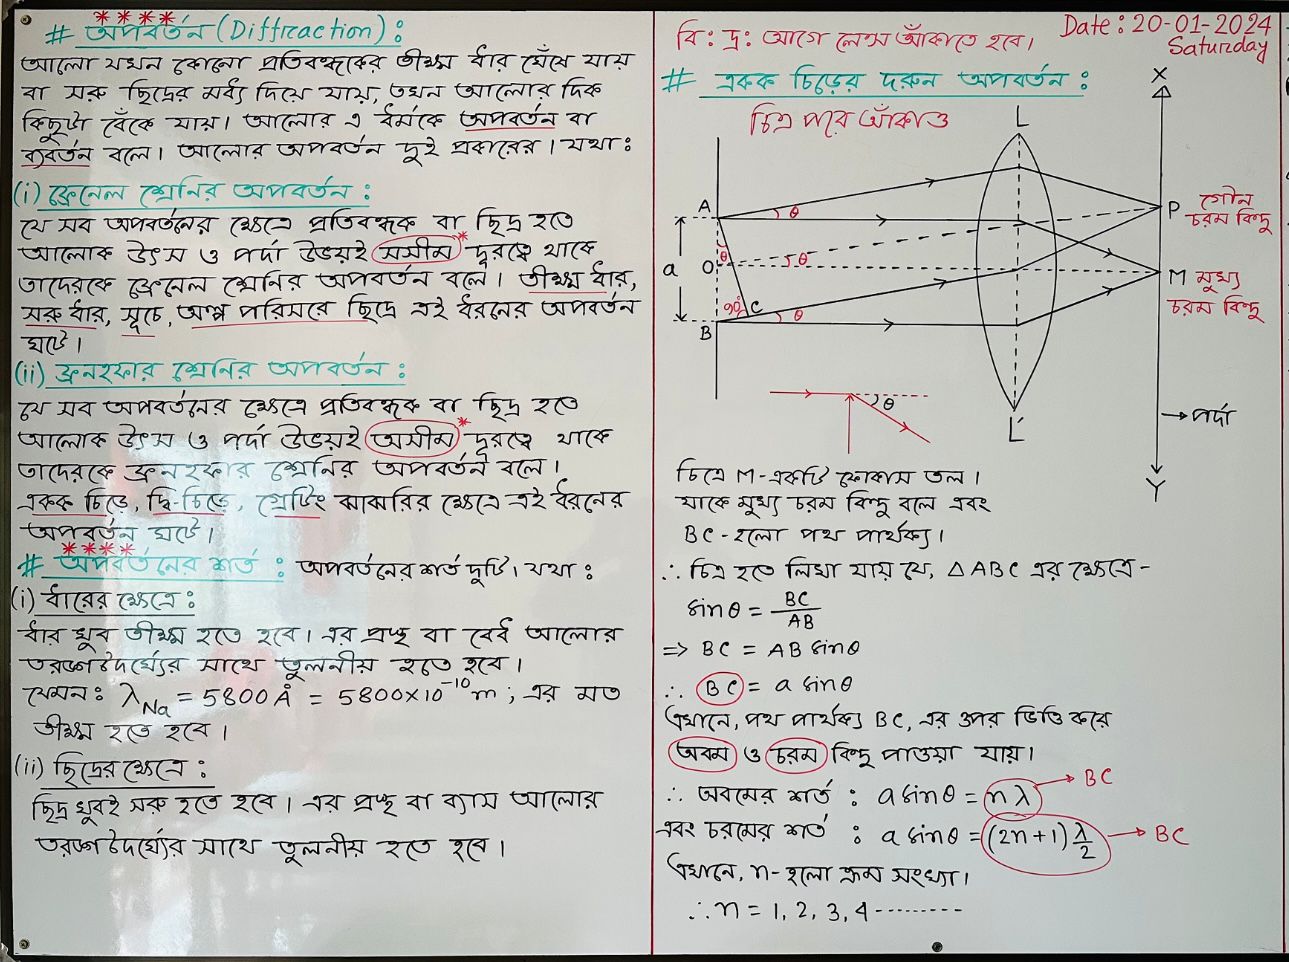 # অপবর্তন (Diffraction) :
আলো যখন কোনো প্রতিবন্ধকের তীক্ষ্ম ধার ঘেঁষে যায়
বা সরু ছিদ্রের মধ্য দিয়ে যায়, তখন আলোর দিক
কিছুটা বেঁকে যায়। আলোর এ ধর্মকে অপবর্তন বা
ব্যবর্তন বলে। আলোর অপবর্তন দুই প্রকারের। যথা :
(i) ফ্রেনেল শ্রেনির অপবর্তন :
যে সব অপবর্তনের ক্ষেত্রে প্রতিবন্ধক বা ছিদ্র হতে
আলোক উৎস ও পর্দা উভয়ই সসীম* দূরত্বে থাকে
তাদেরকে ফ্রেনেল শ্রেনির অপবর্তন বলে। তীক্ষ্ম ধার,
সরু ধার, সূচে, অল্প পরিসরে ছিদ্রে এই ধরনের অপবর্তন
ঘটে।
(ii) ফ্রনহফার শ্রেনির অপবর্তন :
যে সব অপবর্তনের ক্ষেত্রে প্রতিবন্ধক বা ছিদ্র হতে
আলোক উৎস ও পর্দা উভয়ই অসীম* দূরত্বে থাকে
তাদেরকে ফ্রনহফার শ্রেনির অপবর্তন বলে।
একক চিড়ে, দ্বি-চিড়ে, গ্রেটিং ঝাঝরির ক্ষেত্রে এই ধরনের
অপবর্তন ঘটে।
# অপবর্তনের শর্ত : অপবর্তনের শর্ত দুটি। যথা :
(i) ধারের ক্ষেত্রে :
ধার খুব তীক্ষ্ম হতে হবে। এর প্রস্থ বা বেধ আলোর
তরঙ্গদৈর্ঘ্যের সাথে তুলনীয় হতে হবে।
যেমন : λNa = 5800 Å = 5800×10⁻¹⁰ m ; এর মত
তীক্ষ্ম হতে হবে।
(ii) ছিদ্রের ক্ষেত্রে :
ছিদ্র খুবই সরু হতে হবে। এর প্রস্থ বা ব্যাস আলোর
তরঙ্গদৈর্ঘ্যের সাথে তুলনীয় হতে হবে।
Date : 20-01-2024
Saturday
বি : দ্র : আগে লেন্স আঁকাতে হবে।
# একক চিড়ের দরুন অপবর্তন :
চিত্র পরে আঁকাও
X
L
A
θ
P
গৌন
চরম বিন্দু
a
O
θ
θ
M
মুখ্য
চরম বিন্দু
90°
C
θ
B
θ
L'
→ পর্দা
Y
চিত্রে M-একটি ফোকাস তল।
যাকে মুখ্য চরম বিন্দু বলে এবং
BC-হলো পথ পার্থক্য।
∴ চিত্র হতে লিখা যায় যে, △ABC এর ক্ষেত্রে-
sinθ = BC/AB
=> BC = AB sinθ
∴ BC = a sinθ
এখানে, পথ পার্থক্য BC, এর উপর ভিত্তি করে
অবম ও চরম বিন্দু পাওয়া যায়।
∴ অবমের শর্ত : a sinθ = nλ → BC
এবং চরমের শর্ত : a sinθ = (2n+1) λ/2 → BC
এখানে, n-হলো ক্রম সংখ্যা।
∴ n = 1, 2, 3, 4 ---------